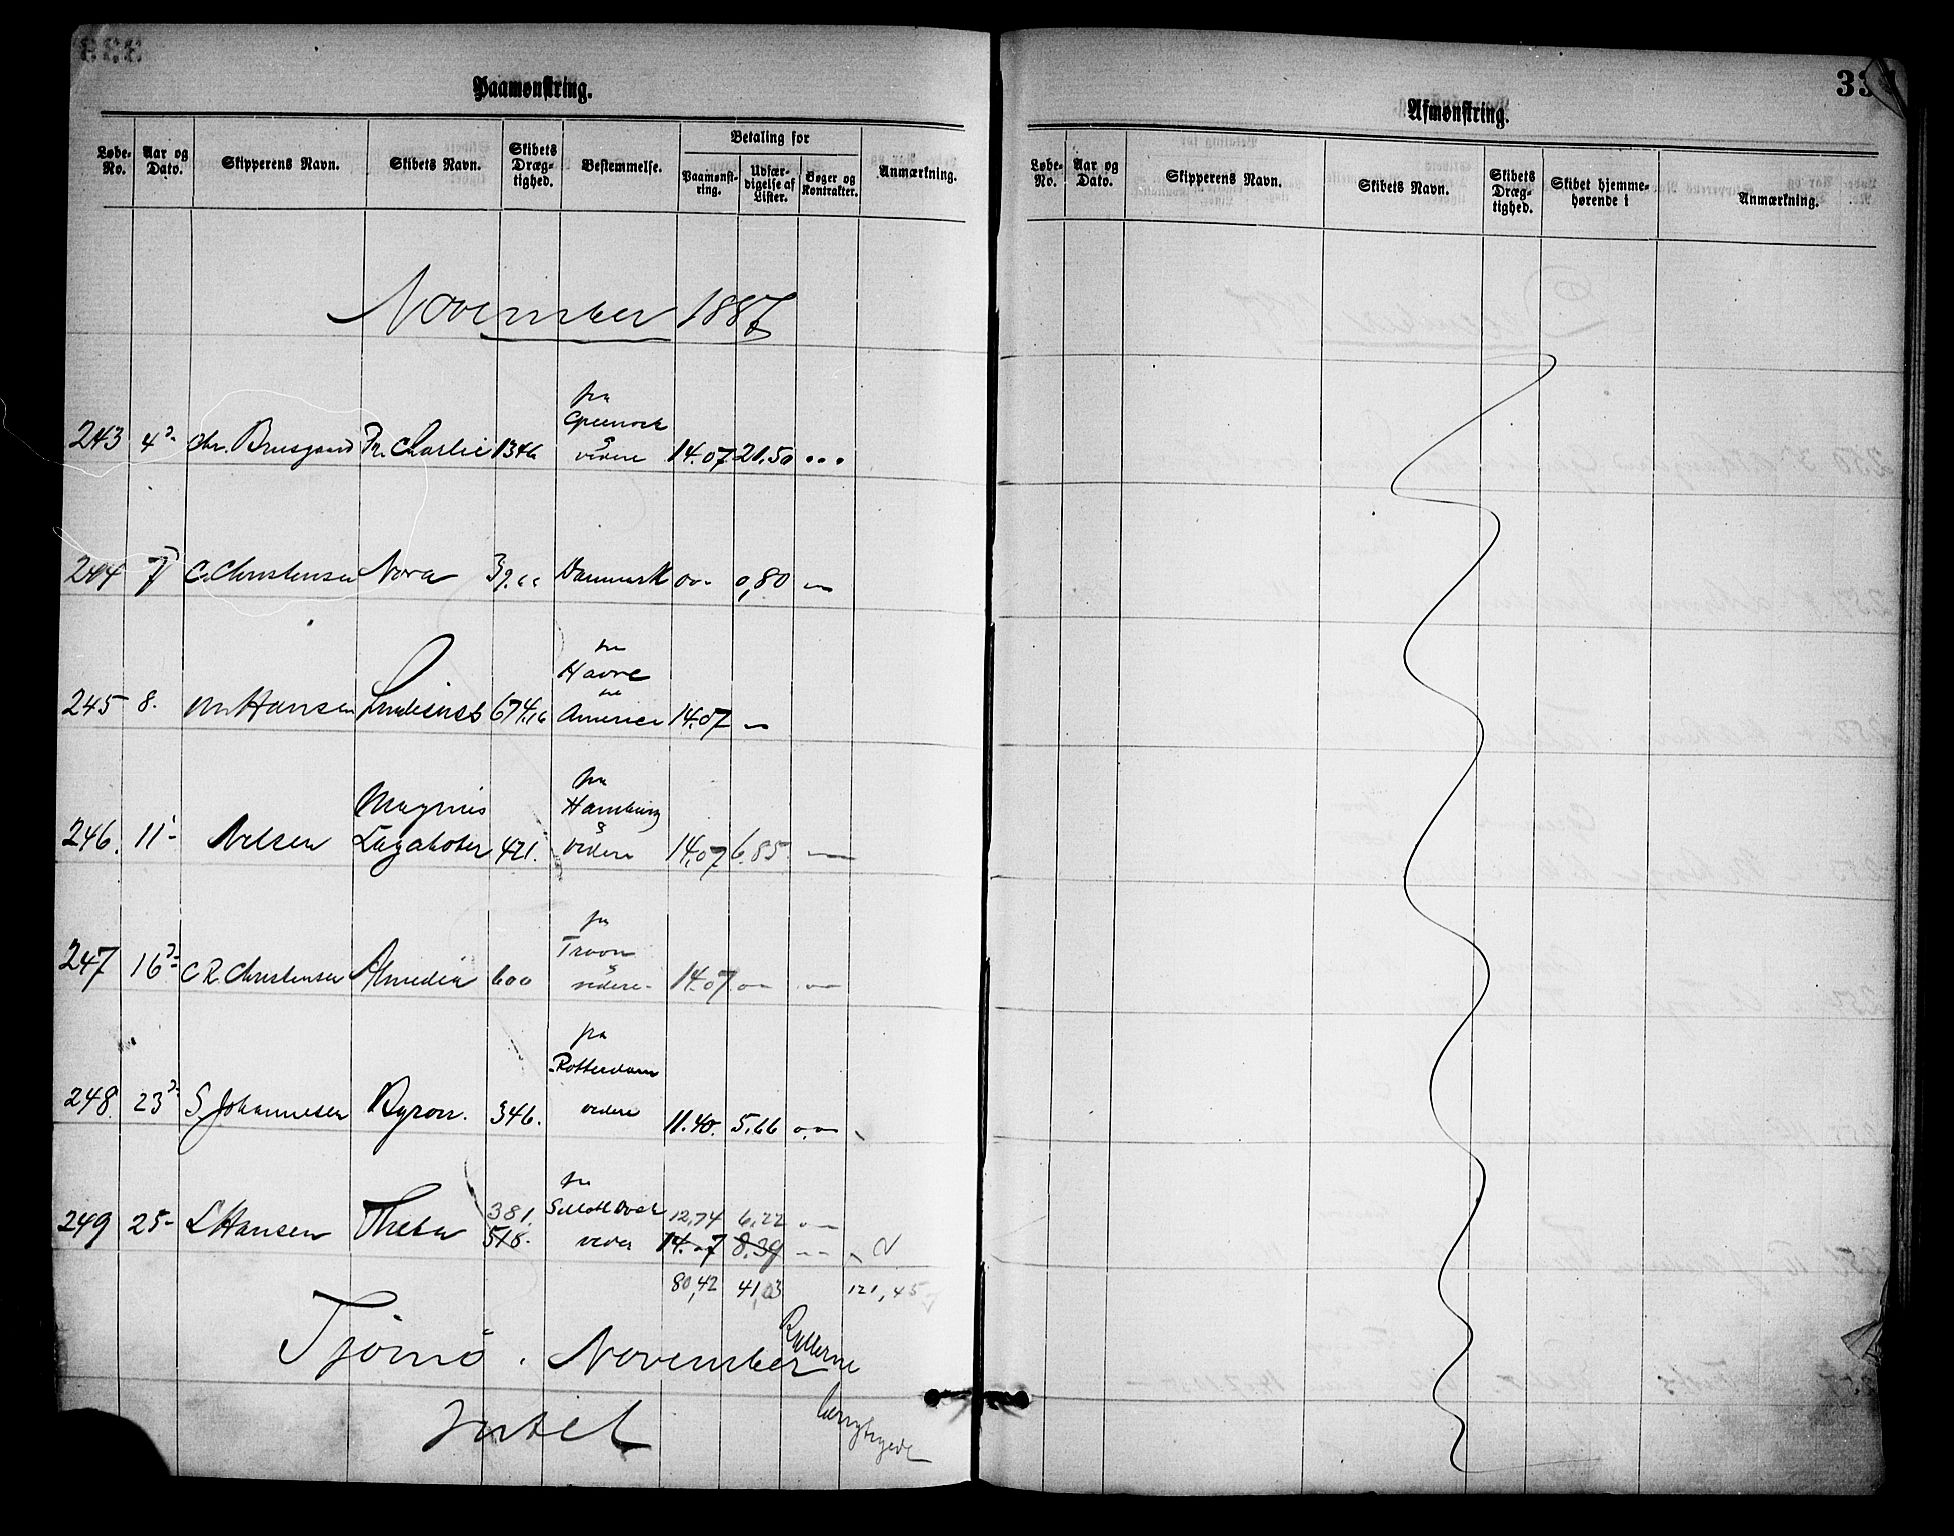 Paamønstring.
Løbe-No. Aar og Dato. Skipperens Navn. Skibets Navn. Skibets Dræg-tighed. Bestemmelse. Betaling for Paamønst-ring. Udfær-digelse af Lister. Bøger og Kontrakter. Anmærkning.
November 1887
fra
Greenock
&
243 4 Chr. Bruusgaard Pr. Charlie 1346 videre 14.07 21.50
244 7 C. Christensen Nora 39. Danmark 0,80 —
fra
Havre
245 8. M Hansen 674.16 America 14.07 —
fra
Magnus Hamburg
&
246. 11 Nilsen Lagaboter 421. videre 14.07 6.85. —
fra
Troon
&
247 16 C R. Christensen Almedia 600 videre- 14.07
fra
Rotterdam
248. 23 S. Johannesen Byron. 346. videre 11.40. 5.66
fra
381. 12,74 6,22
249 25- L Hansen Theba 518. 14.07 8.39
80,42 41,03 121,45
Tjømø. November Rullerne
Intet
Afmønstring.
33
Løbe-No. Aar og Dato. Skipperens Navn. Skibets Navn. Skibets Dræg-tighed. Skibet hjemme-hørende i Anmærkning.